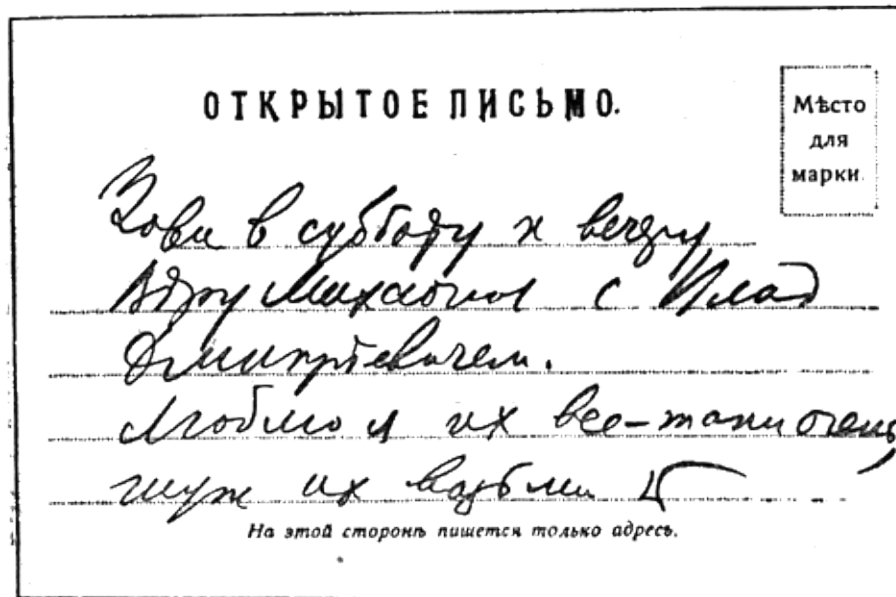 ОТКРЫТОЕ ПИСЬМО.
Мѣсто
для
марки.
Зови в субботу к вечеру
Веру Михайловну с Влад
Дмитріевичем.
Люблю я их все-таки очень,
шут их возьми
На этой сторонѣ пишется только адресъ.